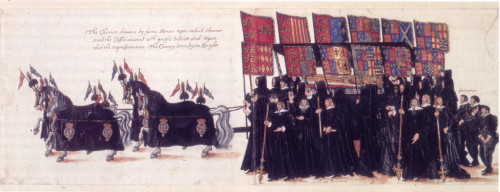 The Chariot drawne by foure Horses upon which Charret
stood the Coffin covered wth purple Velvett and upon
that the representation, The Canopy borne by six Knights